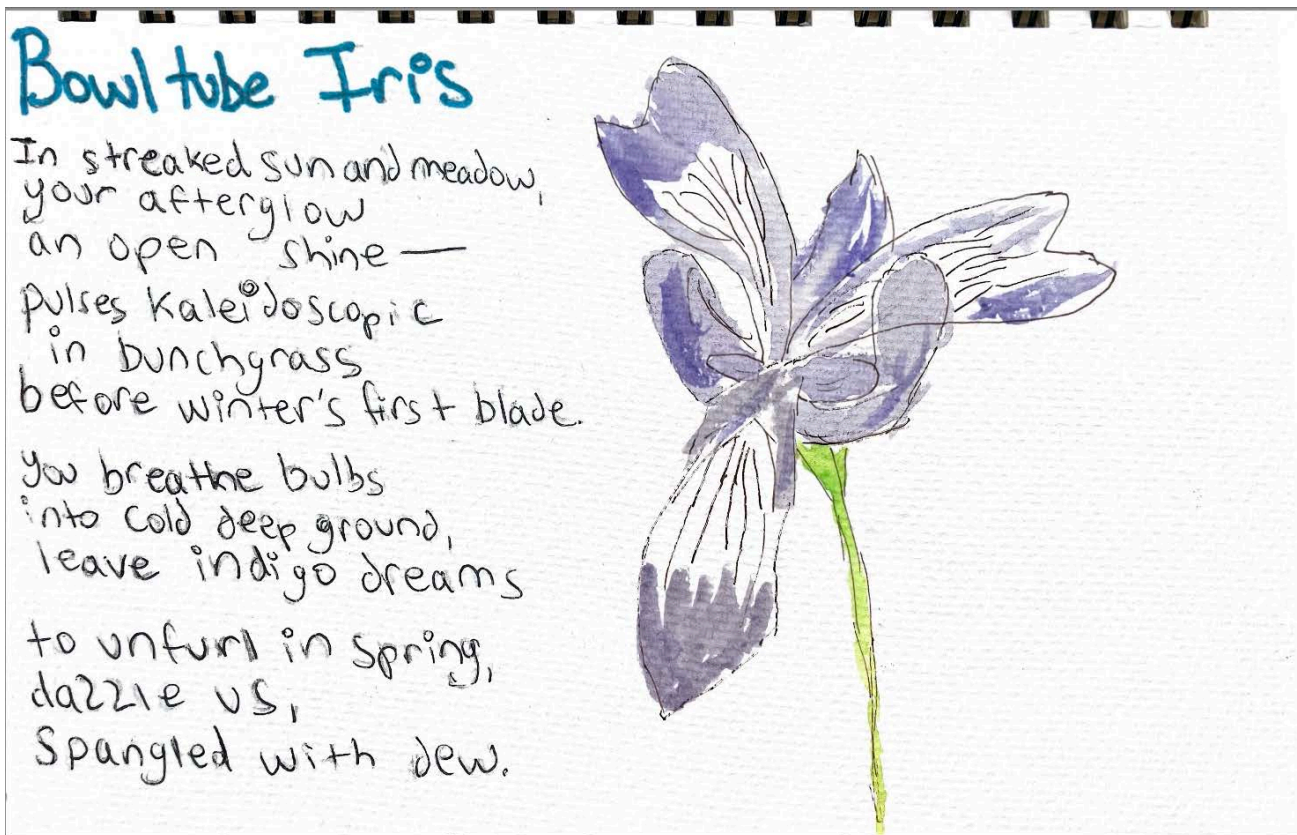 Bowl tube Iris
In streaked sun and meadow,
your afterglow
an open shine —
pulses kaleidoscopic
in bunchgrass
before winter's first blade.
you breathe bulbs
into cold deep ground,
leave indigo dreams
to unfurl in spring,
dazzle us,
Spangled with dew.